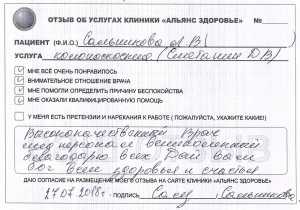 ОТЗЫВ ОБ УСЛУГАХ КЛИНИКИ «АЛЬЯНС ЗДОРОВЬЕ» №
ПАЦИЕНТ (Ф.И.О.) Сальникова А В
УСЛУГА колоноскопия (Сметанин Ю В)
МНЕ ВСЁ ОЧЕНЬ ПОНРАВИЛОСЬ
ВНИМАТЕЛЬНОЕ ОТНОШЕНИЕ ВРАЧА
МНЕ ПОМОГЛИ ОПРЕДЕЛИТЬ ПРИЧИНУ БЕСПОКОЙСТВА
МНЕ ОКАЗАЛИ КВАЛИФИЦИРОВАННУЮ ПОМОЩЬ
У МЕНЯ ЕСТЬ ПРЕТЕНЗИИ И НАРЕКАНИЯ К РАБОТЕ ( ПОЖАЛУЙСТА, УКАЖИТЕ КАКИЕ)
Врач
мед персонал
благодарю всех. Дай вам
бог всем здоровья и счастья
ДАЮ СОГЛАСИЕ НА РАЗМЕЩЕНИЕ МОЕГО ОТЗЫВА НА САЙТЕ КЛИНИКИ «АЛЬЯНС ЗДОРОВЬЕ»
27.07.2018г. ПОДПИСЬ